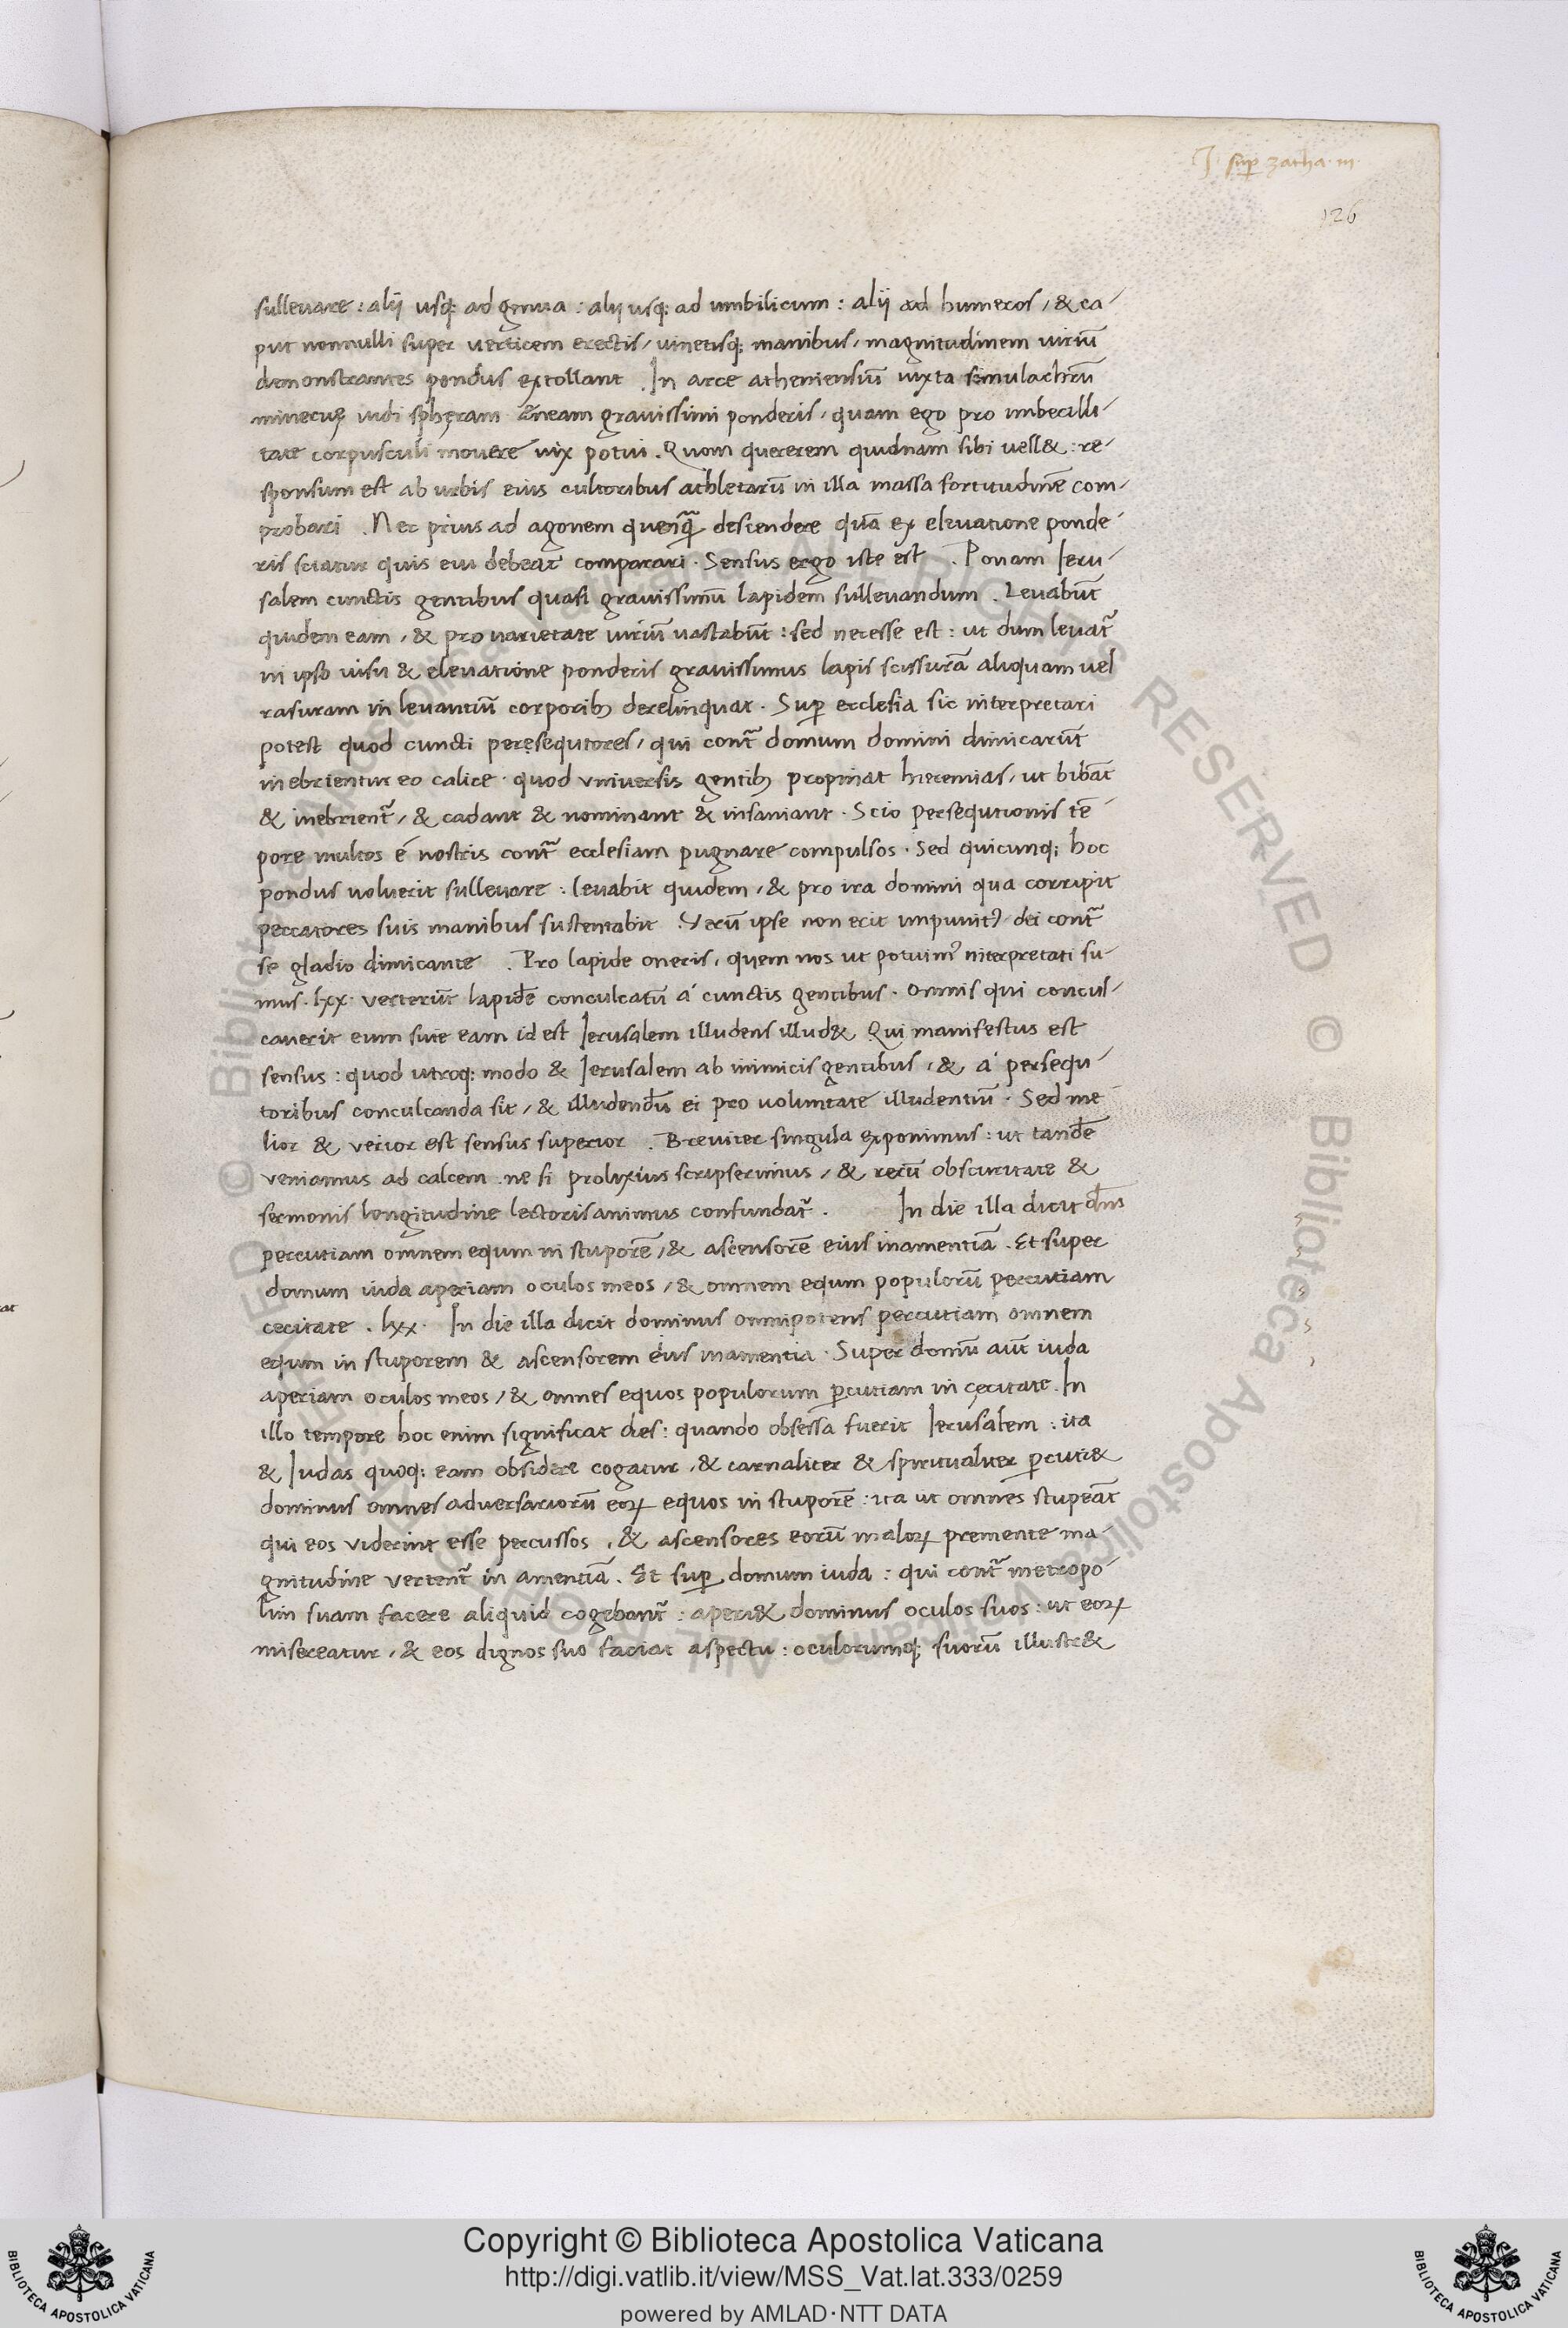 J. sup̄ zacha. m.
126
sullevare : alij usq; ad genua : alij usq; ad umbilicum : alij ad humeros, & ca-
put nonnulli super verticem erectis, iunctisq; manibus, magnitudinem uiriū
demonstrantes pondus extollant. In arce atheniensiū iuxta simulachrū
minervę uidi spheram ęneam gravissimi ponderis, quam ego pro imbecilli-
tate corpusculi movere uix potui. Quom quererem quidnam sibi uell& : re-
sponsum est ab urbis eius cultoribus athletarū in illa massa fortitudinē com-
probari. Nec prius ad agonem quenq̄ descendere quā ex elevatione ponde-
ris sciatur quis cui debeat comparari. Sensus ergo iste est. Ponam Ieru-
salem cunctis gentibus quasi gravissimū lapidem sullevandum. Levabūt
quidem eam, & pro varietate uiriū vastabūt : sed necesse est : ut dum levat᷑
in ipso nisu & elevatione ponderis gravissimus lapis scissurā aliquam vel
rasuram in levantiū corporib; derelinquat. Sup̄ ecclesia sic interpretari
potest quod cuncti peresequtores, qui cont᷑ domum domini dimicarūt
inebrientur eo calice quod universis gentib; propinat hieremias, ut bibāt
& inebrient᷑, & cadant & nominant & insaniant. Scio persequtionis tē-
pore multos é nostris cont᷑ ecclesiam pugnare compulsos. Sed quicunq; hoc
pondus voluerit sullevare : levabit quidem, & pro ira domini qua corripit
peccatores suis manibus sustentabit. Verū ipse non erit impunit᷒ dei cont᷑
se gladio dimicante. Pro lapide oneris, quem nos ut potuim᷒ interpretati su-
mus. lxx. verterūt lapidē conculcatū á cunctis gentibus. Omnis qui concul-
caverit eum sive eam id est Ierusalem illudens illud&. Qui manifestus est
sensus : quod utroq; modo & Ierusalem ab inimicis gentibus, & á persequ-
toribus conculcanda sit, & illudendū ei pro voluntate illudentiū. Sed me-
lior & verior est sensus superior. Breviter singula exponimus : ut tandē
veniamus ad calcem. ne si prolixius scripserimus, & rerū obscuritate &
sermonis longitudine lectoris animus confundat᷑. In die illa dicit dn̄s
percutiam omnem equm in stuporē, & ascensorē eius inamentiā. Et super
domum iuda aperiam oculos meos, & omnem equm populorū percutiam
cecitate. lxx. In die illa dicit dominus omnipotens percutiam omnem
equm in stuporem & ascensorem eius inamentia. Super domū aūt iuda
aperiam oculos meos, & omnes equos populorum p̄cutiam in cęcitate. In
illo tempore hoc enim significat dies : quando obsessa fuerit Ierusalem : ita
& Iudas quoq; eam obsidere cogatur, & carnaliter & spiritualiter p̄cuti&
dominus omnes adversariorū eoꝝ equos in stuporē : ita ut omnes stupeāt
qui eos viderint esse percussos, & ascensores eorū maloꝝ premente ma-
gnitudine vertent᷑ in amentiā. Et sup̄ domum iuda : qui cont᷑ metropo-
lim suam facere aliquid cogebant᷑ : aperi& dominus oculos suos : ut eoꝝ
misereatur, & eos dignos suo faciat aspectu : oculorumq; suorū illustr&
Copyright © Biblioteca Apostolica Vaticana
http://digi.vatlib.it/view/MSS_Vat.lat.333/0259
powered by AMLAD·NTT DATA
BIBLIOTECA APOSTOLICA VATICANA
BIBLIOTECA APOSTOLICA VATICANA